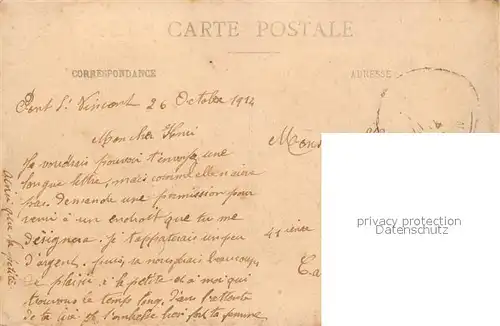 CARTE POSTALE
CORRESPONDANCE
ADRESSE
Pont St Vincent 26 Octobre 1914
Mon cher Henri
Je voudrais pouvoir t'envoyer une
longue lettre, mais comme elle n'aura
pas demande une permission pour
venir à un endroit que tu me
désignera je t'apporterais un peu
d'argent, puis, sa nous ferais beaucoup
de plaisir à la petite et à moi qui
trouvons le temps long. Dans l'attente
de te lire je t'embrasse bien fort ta femme
ainsi que la petite
Mons
41 ième
Ca
privacy protection
VINTAGE-POSTCARD